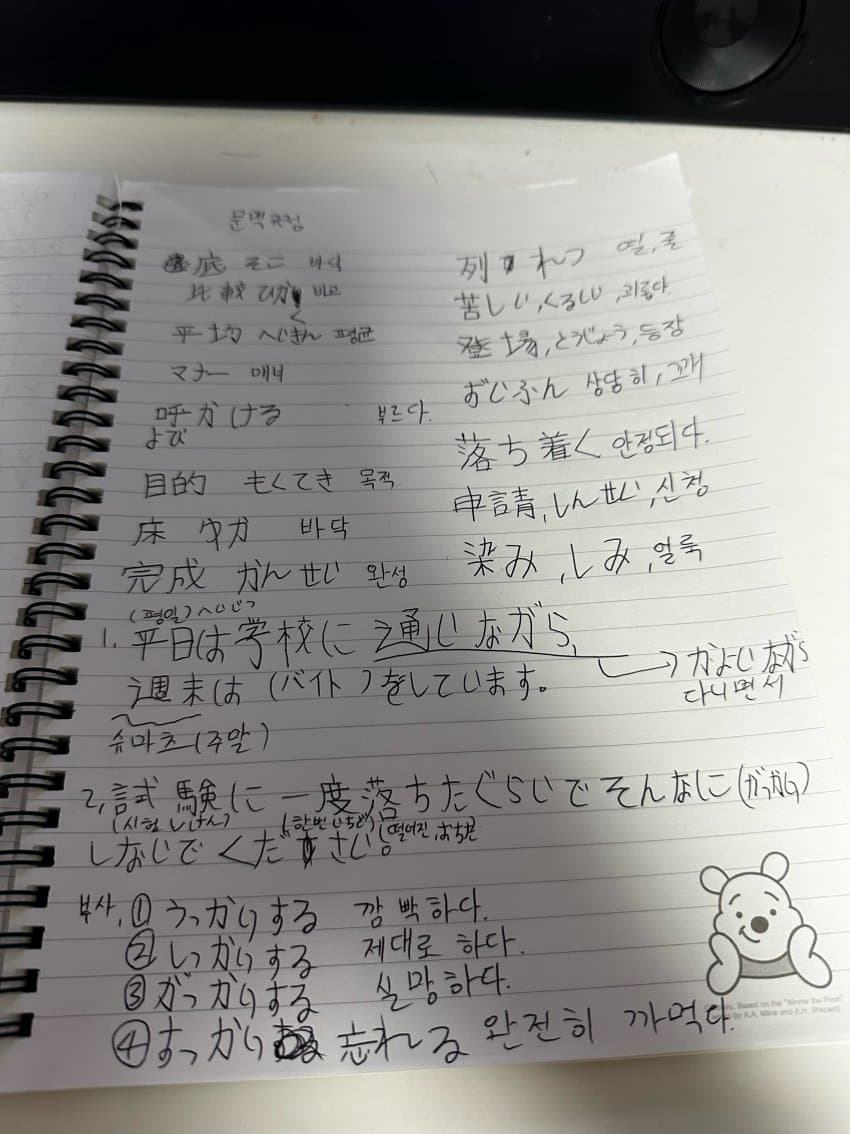 문맥규정
底 そこ 바닥
比較 ひかく 비교
平均 へいきん 평균
マナー 매너
呼かける 부르다.
よび
目的 もくてき 목적
床 ゆか 바닥
完成 かんせい 완성
列 れつ 열, 줄
苦しい, くるしい, 괴롭다.
登場, とうじょう, 등장
ずいぶん 상당히, 꽤
落ち着く 안정되다.
申請, しんせい, 신청
染み, しみ, 얼룩
(평일) へいじつ
1. 平日は学校に通いながら,
→ かよいながら
다니면서
週末は (バイト) をしています。
슈마츠 (주말)
2, 試験に一度落ちたぐらいでそんなに (がっかり)
(시험 しけん) (한번 いちど) (떨어진, おちた)
しないでください。
부사, ① うっかりする 깜빡하다.
② しっかりする 제대로 하다.
③ がっかりする 실망하다.
④ すっかり 忘れる 완전히 까먹다.
Based on the "Winnie the Pooh"
by A.A. Milne and E.H. Shepard